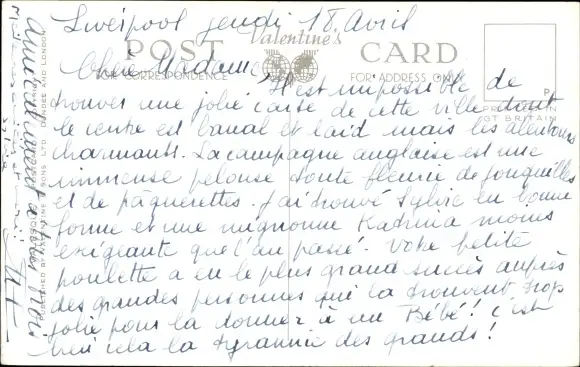 Liverpool jeudi 18 Avril
Valentine's
POST CARD
Chère Madame,
FOR CORRESPONDENCE
FOR ADDRESS ONLY
Il est impossible de
trouver une jolie carte de cette ville dont
le centre est banal et laid mais les alentours
charmants. La campagne anglaise est une
immense pelouse toute fleurie de jonquilles
et de pâquerettes. J'ai trouvé Sylvie en bonne
forme et une mignonne Katrina moins
exigeante que l'an passé. Votre petite
poulette a eu le plus grand succès auprès
des grandes personnes qui la trouvent trop
jolie pour la donner à un Bébé! C'est
bien cela la tyrannie des grands!
amicalement à
PUBLISHED BY VALENTINE & SONS LTD. DUNDEE AND LONDON
GT BRITAIN